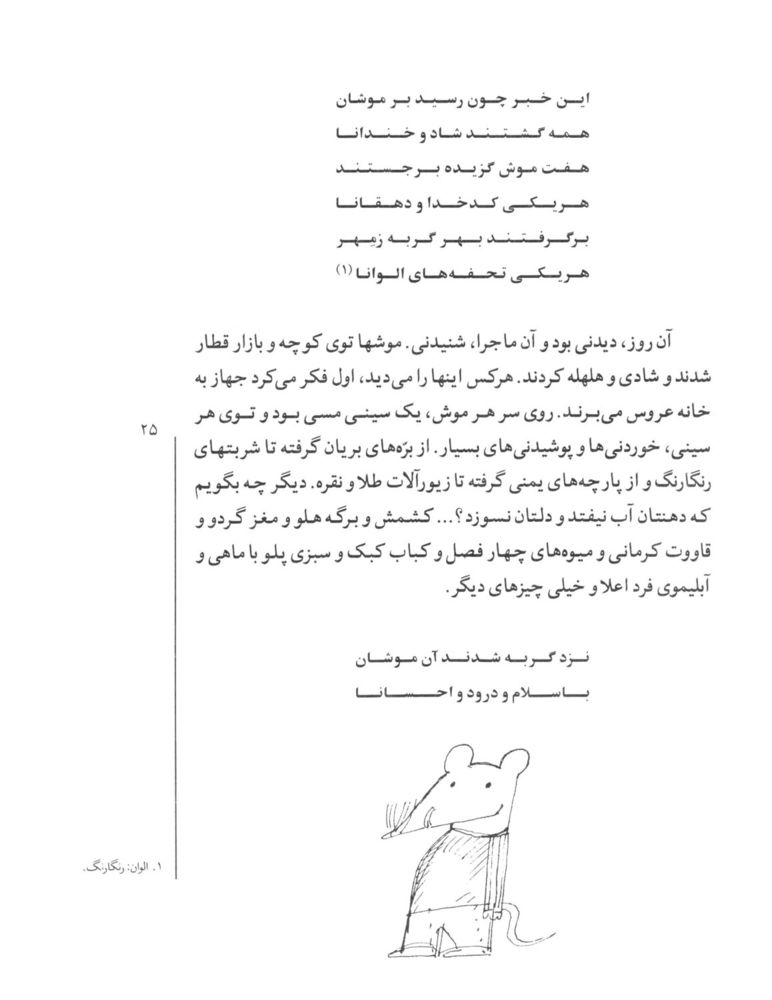 این خبر چون رسید بر موشان
همه گشتند شاد و خندانا
هفت موش گزیده برجستند
هریکی کدخدا و دهقانا
برگرفتند بهر گربه زمِهر
هریکی تحفه‌های الوانا (۱)
آن روز، دیدنی بود و آن ماجرا، شنیدنی. موشها توی کوچه و بازار قطار
شدند و شادی و هلهله کردند. هرکس اینها را می‌دید، اول فکر می‌کرد جهاز به
خانه عروس می‌برند. روی سر هر موش، یک سینی مسی بود و توی هر
سینی، خوردنی‌ها و پوشیدنی‌های بسیار. از برّه‌های بریان گرفته تا شربتهای
رنگارنگ و از پارچه‌های یمنی گرفته تا زیورآلات طلا و نقره. دیگر چه بگویم
که دهنتان آب نیفتد و دلتان نسوزد؟... کشمش و برگه هلو و مغز گردو و
قاووت کرمانی و میوه‌های چهار فصل و کباب کبک و سبزی پلو با ماهی و
آبلیموی فرد اعلا و خیلی چیزهای دیگر.
نزد گربه شدند آن موشان
با سلام و درود و احسانا
۲۵
۱. الوان: رنگارنگ.